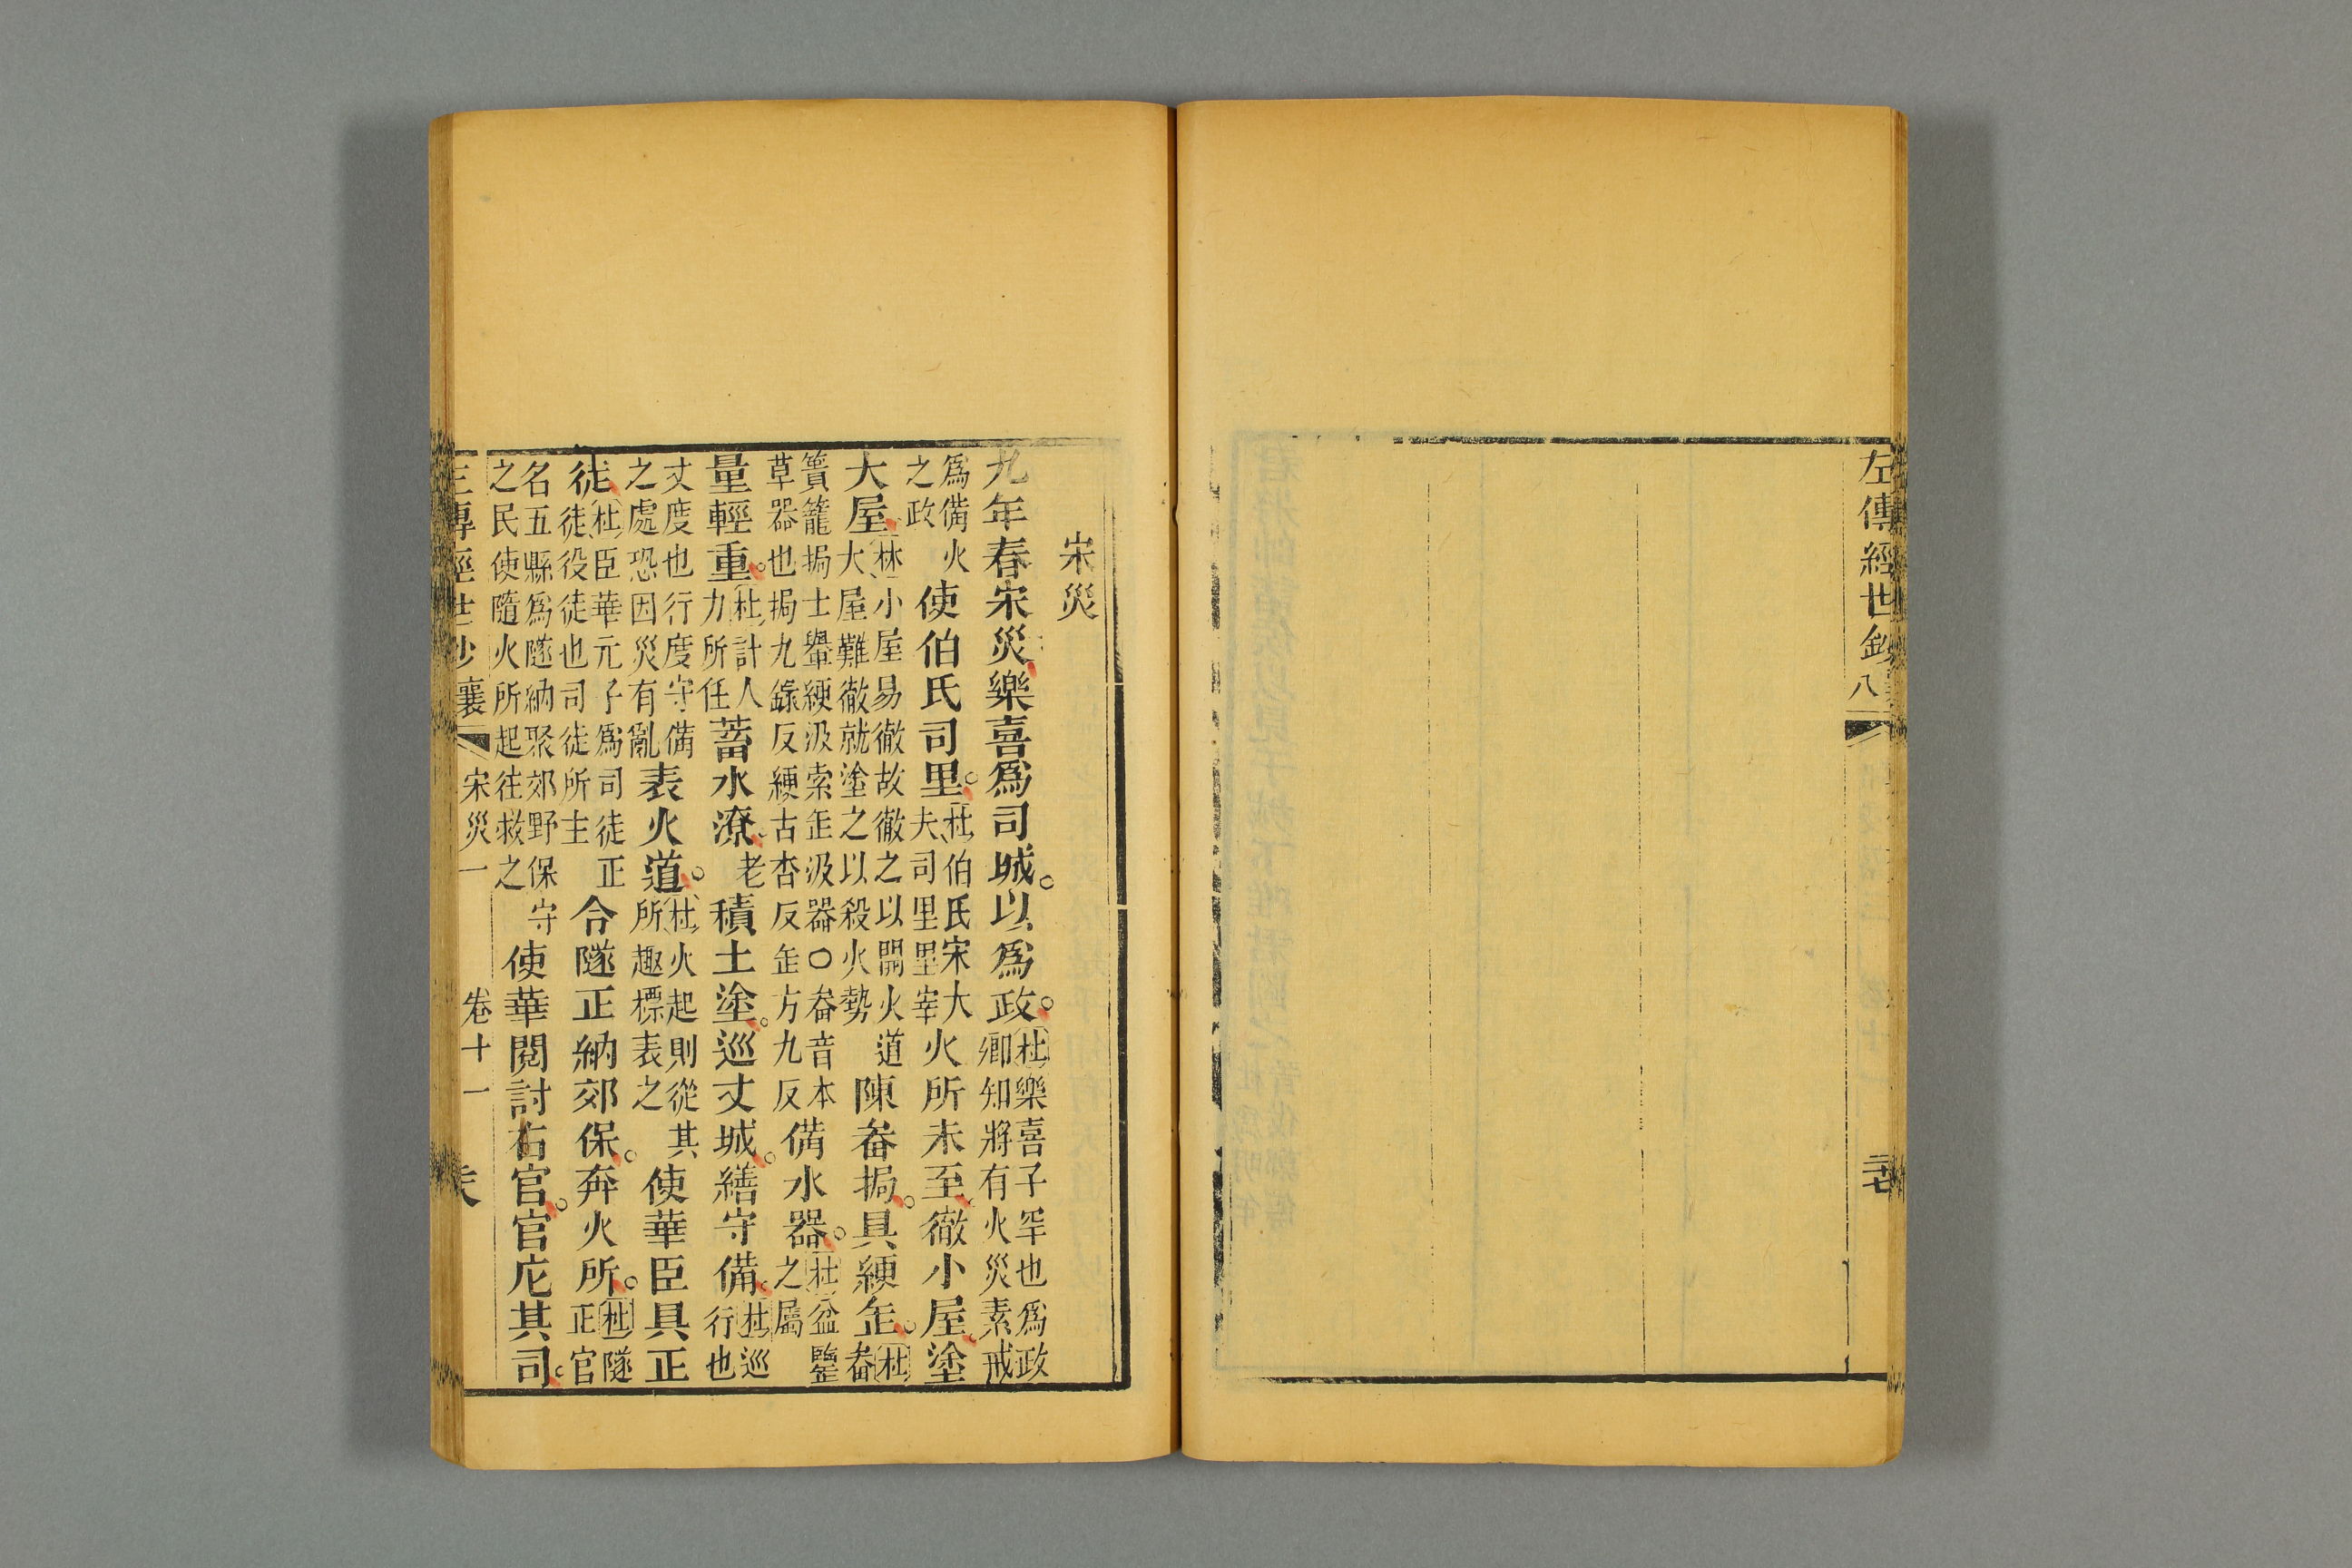 左傳經世鈔八
宋災
九年春宋災樂喜爲司城。以爲政。杜樂喜子罕也爲政卿知將有火災素戒
爲備火之政使伯氏司里。杜伯氏宋大夫司里里宰火所未至徹小屋塗
大屋林小屋易徹故徹之以開火道大屋難徹就塗之以殺火勢陳畚挶。具綆缶。杜畚
簣籠挶士轝綆汲索缶汲器○畚音本草器也挶九錄反綆古杏反缶方九反備水器。杜盆鑒之屬
量輕重。杜計人力所任蓄水潦老積土塗。巡丈城。繕守備。杜巡行也
丈度也行度守備之處恐因災有亂表火道。杜火起則從其所趣標表之使華臣具正
徒杜臣華元子爲司徒正徒徒役徒也司徒所主令隧正納郊保。奔火所。杜隧正官
名五縣爲隧納聚郊野保守之民使隨火所起往救之使華閱討右官。官庀其司。
經世鈔襄 宋災一 卷十一